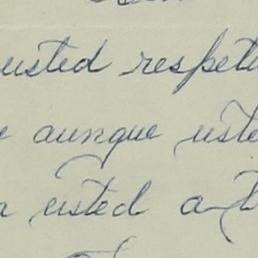 usted respet
aunque uste
usted a t